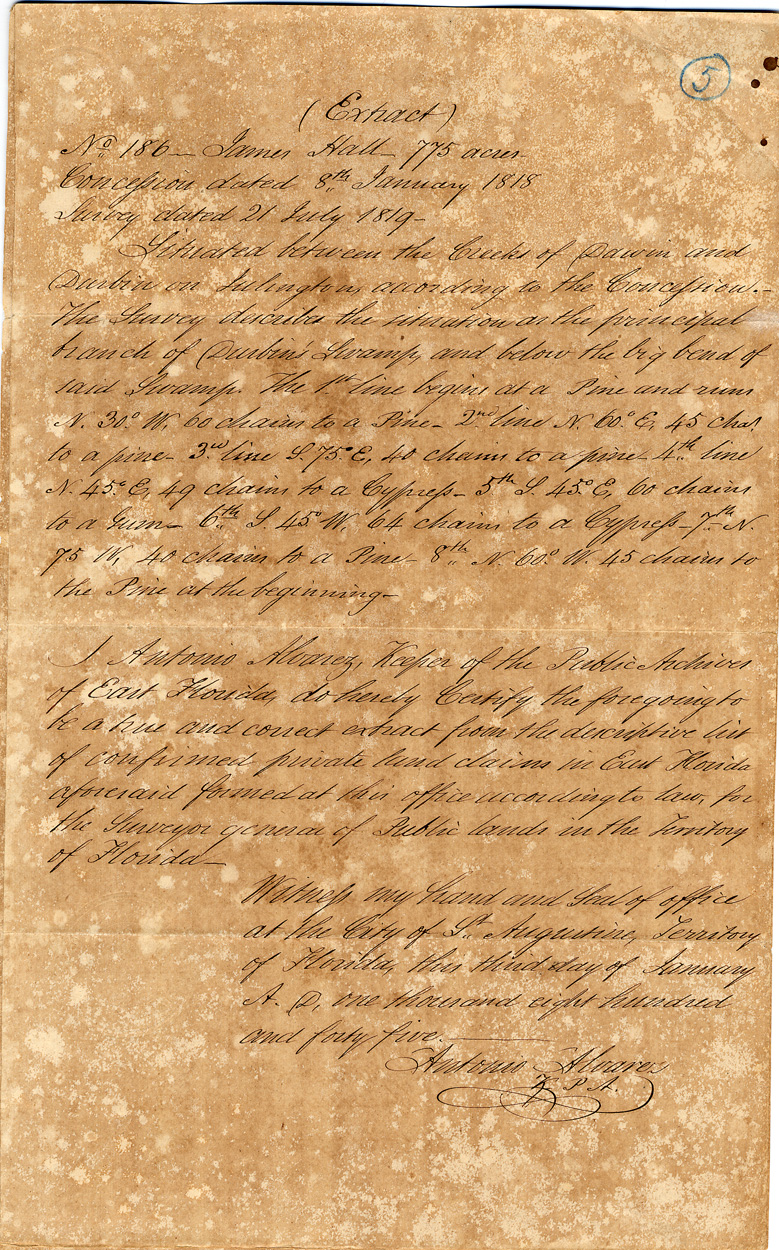 5
(Extract)
No. 186 — James Hall — 775 acres
Concession dated 8th January 1818
Survey dated 21 July 1819 —
Situated between the Creeks of Dawin and
Durbin on Julington, according to the Concession. —
The Survey describes the situation as the principal
branch of Durbin's Swamp, and below the big bend of
said Swamp. The 1st line begins at a Pine and runs
N. 30° W, 60 chains to a Pine — 2nd line N. 60° E, 45 chas.
to a pine — 3rd line S. 75° E, 40 chains to a pine — 4th line
N. 45° E, 49 chains to a Cypress — 5th S. 45° E, 60 chains
to a Gum — 6th S. 45° W, 64 chains to a Cypress — 7th N.
75 W, 40 chains to a Pine — 8th N. 60° W. 45 chains to
the Pine at the beginning —
I Antonio Alvarez, Keeper of the Public Archives
of East Florida, do hereby Certify the foregoing to
be a true and correct extract from the descriptive list
of confirmed private land claims in East Florida
aforesaid formed at this office according to law, for
the Surveyor general of Public lands in the Territory
of Florida —
Witness my hand and Seal of office
at the City of St. Augustine, Territory
of Florida, this third day of January
A. D, one thousand eight hundred
and forty five. —
Antonio Alvarez
K. P. A.